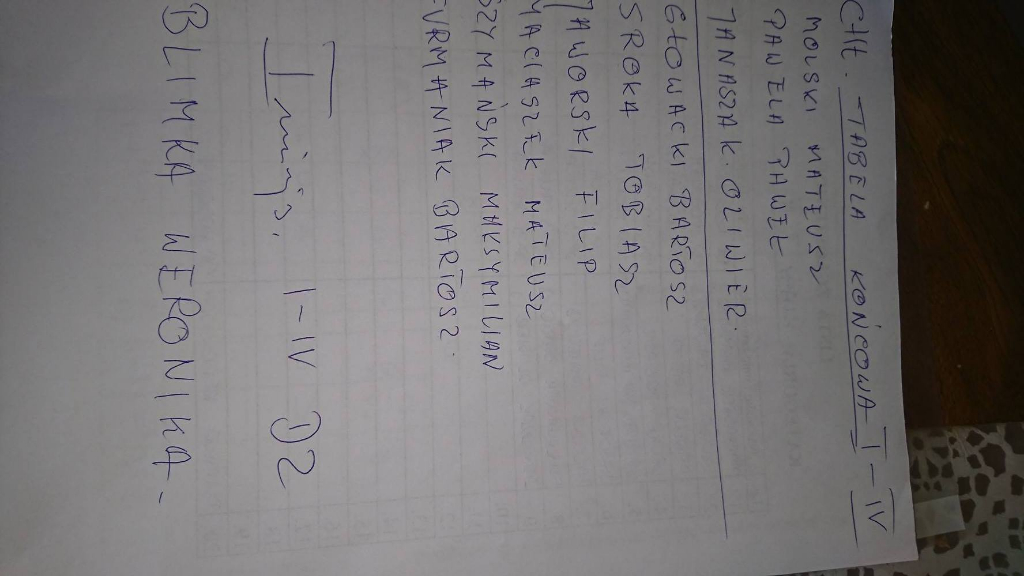 CHŁ. TABELA KOŃCOWA I-IV
MOLSKI MATEUSZ
PAWELA PAWEŁ
JANASZAK OLIWIER.
GŁOWACKI BARTOSZ
SROKA TOBIASZ
JAWORSKI FILIP
MACIASZEK MATEUSZ
SZYMAŃSKI MAKSYMILIAN
FURMANIAK BARTOSZ.
I miejs. I-IV DZ
BLIMKA WERONIKA.